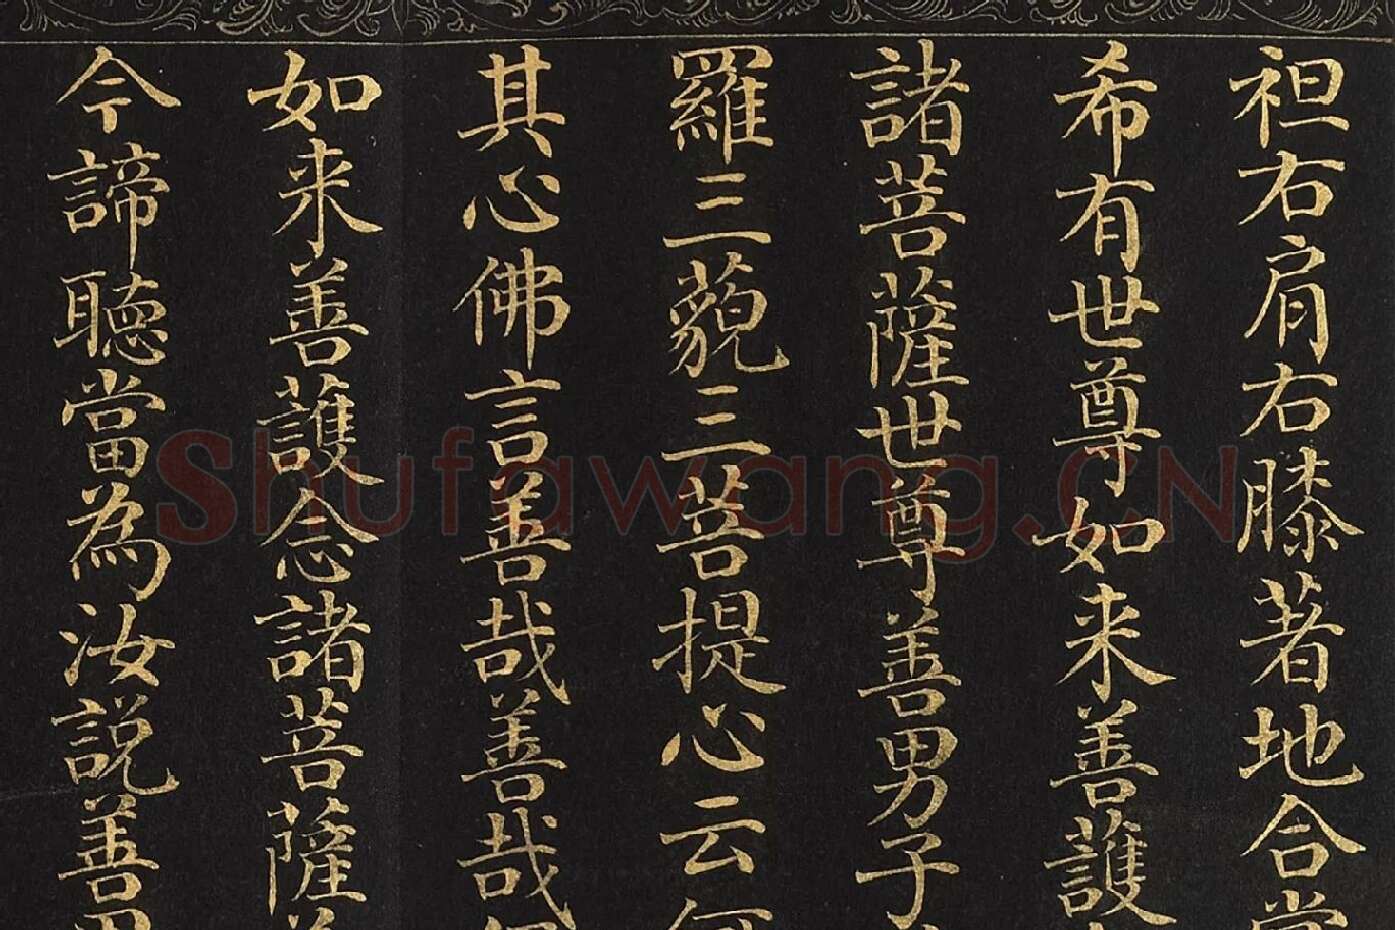 袒右肩右膝著地合掌
希有世尊如来善護
諸菩薩世尊善男子
羅三藐三菩提心云何
其心佛言善哉善哉
如来善護念諸菩薩
今諦聽當為汝說善男
Shufawang.CN